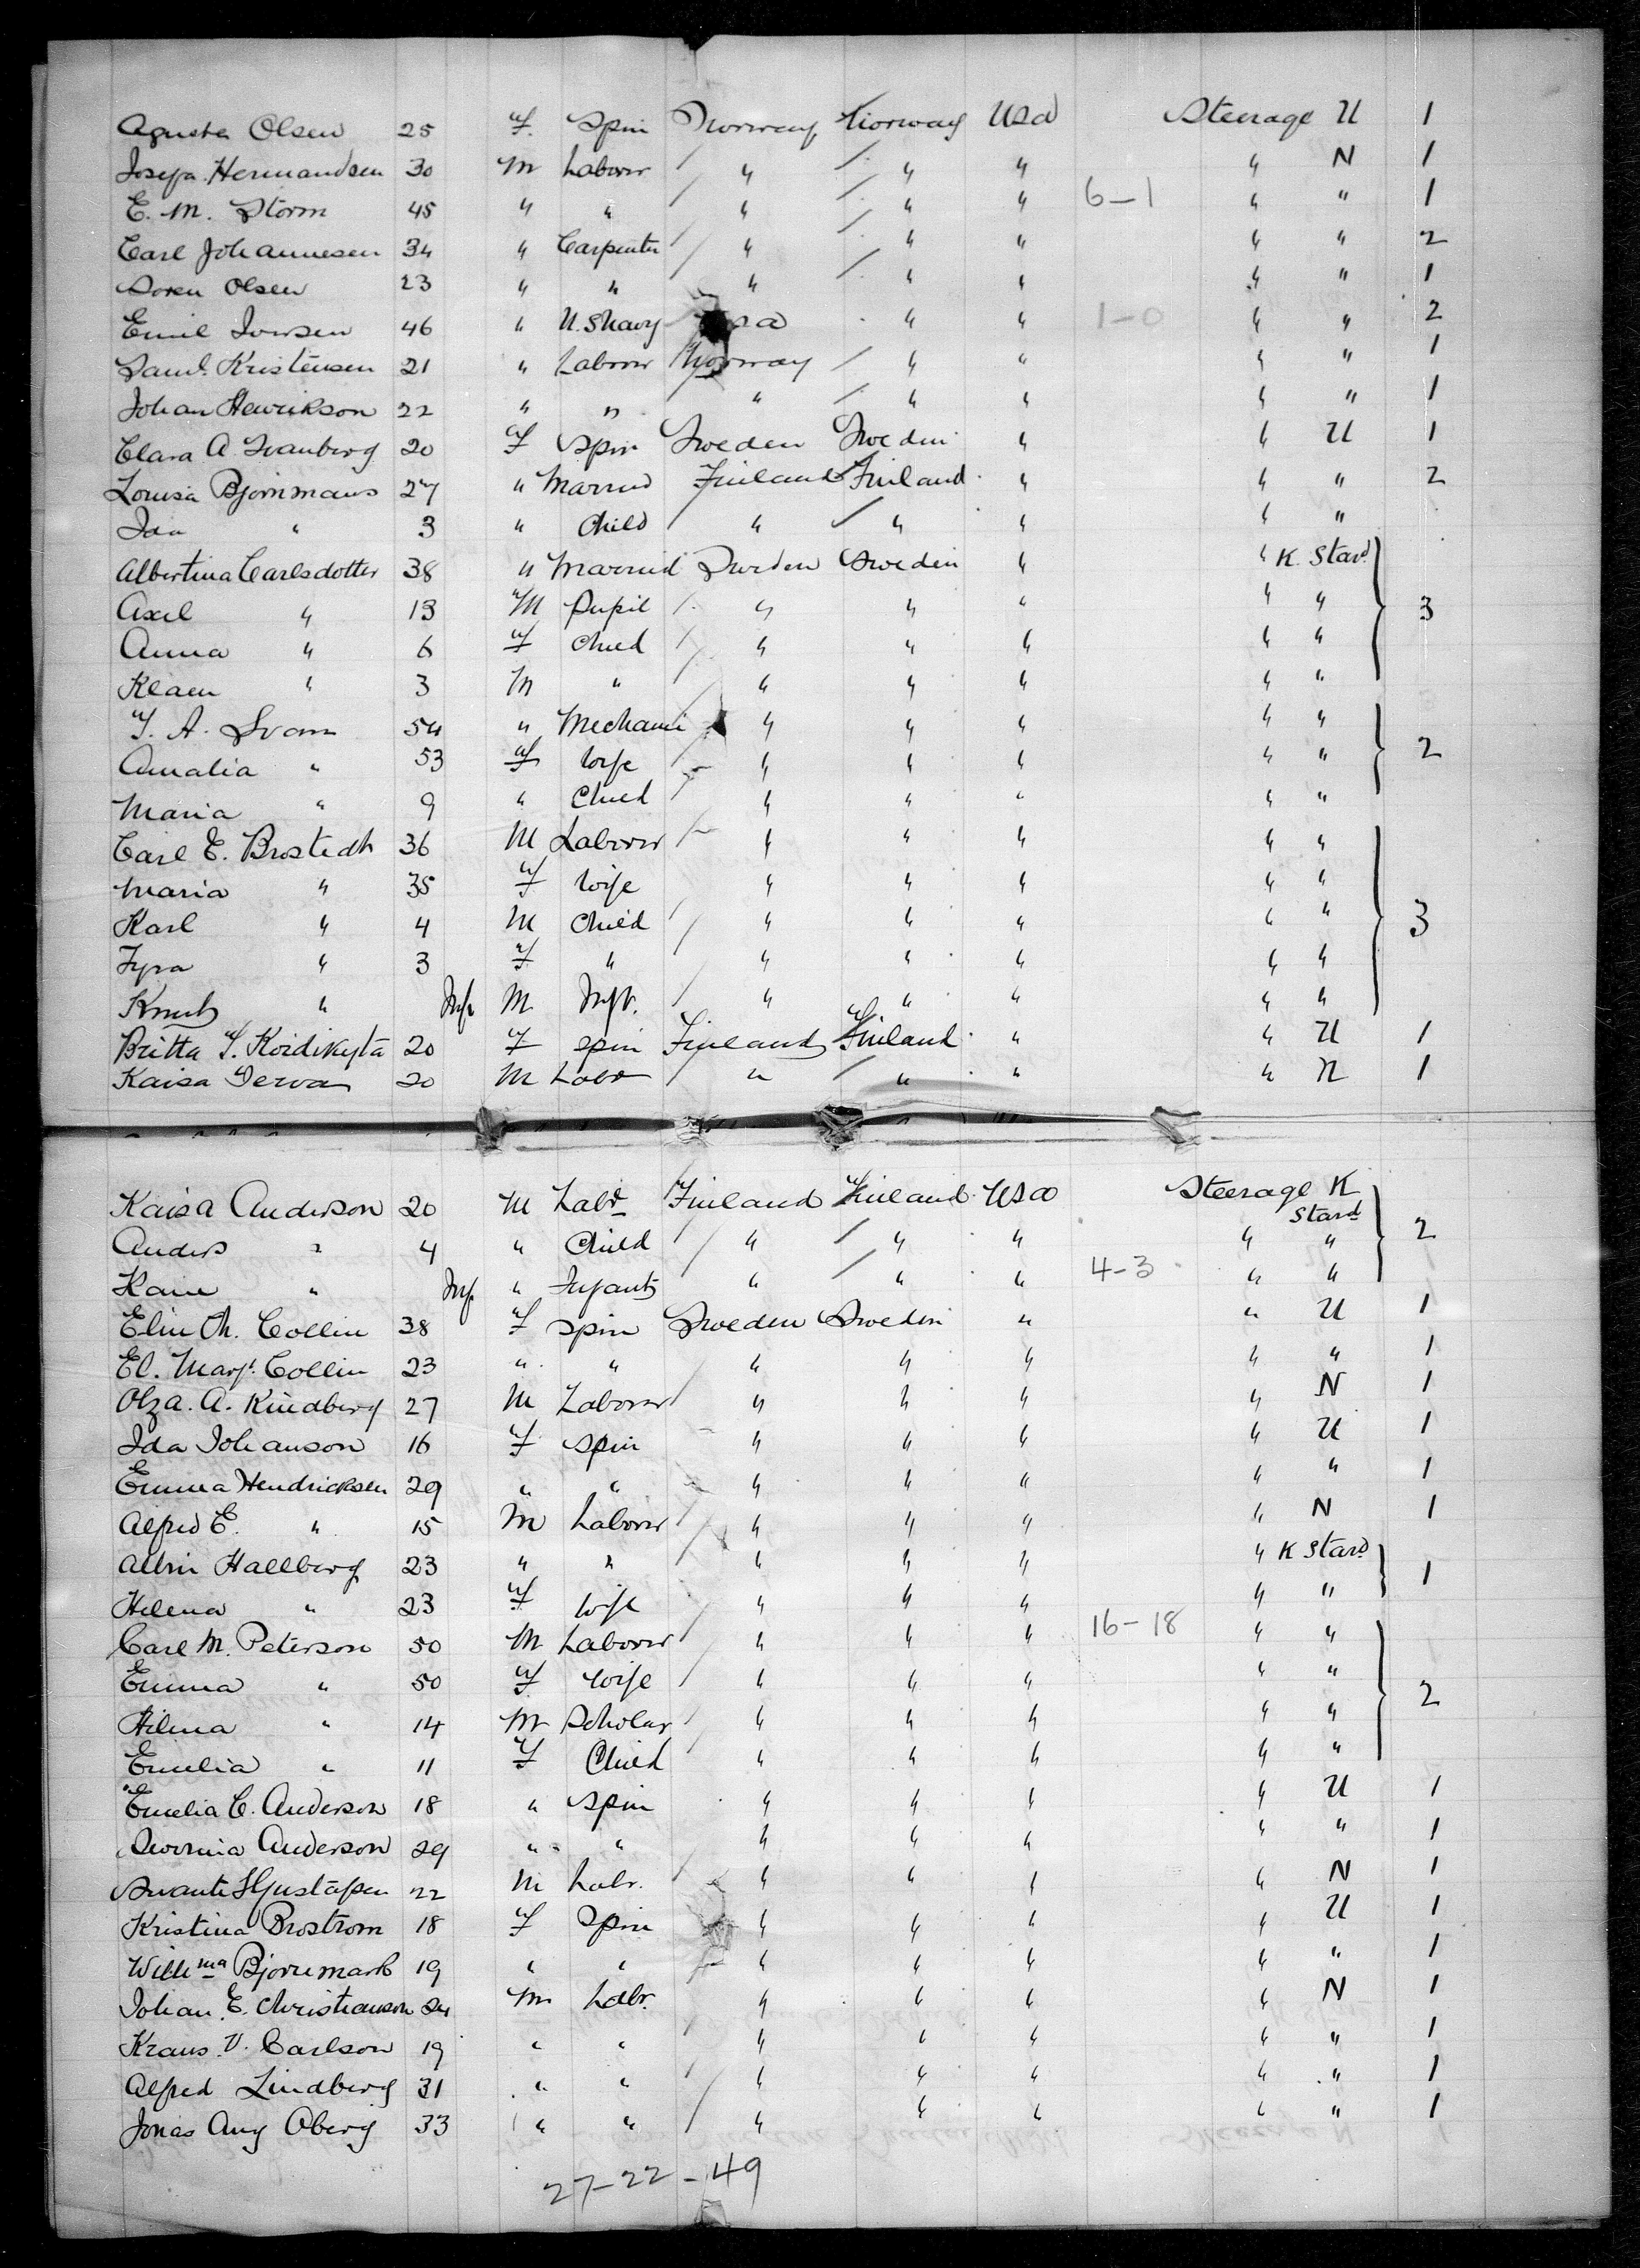 Agusta Olsen 25 F. Spin Norway Norway USA Steerage U 1
Josefa Hermandsen 30 M Laborer " " " " N 1
E. M. Storm 45 " " " " " 6-1 " " 1
Carl Johannesen 34 " Carpenter " " " " " 2
Soren Olsen 23 " " " " " " " 1
Emil Iversen 46 " U.S Navy " " 1-0 " " 2
Saml. Kristensen 21 " Laborer Norway " " " " 1
Johan Henrikson 22 " " " " " " " 1
Clara A Svanberg 20 F Spin Sweden Sweden " " U 1
Louisa Bjornmans 27 " Married Finland Finland " " " 2
Ida " 3 " Child " " " " "
Albertina Carlsdotter 38 " Married Sweden Sweden " " K Stard
Axel " 13 M Pupil " " " " " 3
Anna " 6 F Child " " " " "
Klaen " 3 M " " " " " "
F. A. Svam 54 " Mechanic " " " " "
Amalia " 53 F Wife " " " " " 2
Maria " 9 " Child " " " " "
Carl E. Brostedt 36 M Laborer " " " " "
Maria " 35 F Wife " " " " "
Karl " 4 M Child " " " " " 3
Fyra " 3 F " " " " " "
Knut " Inf M Inft. " " " " "
Britta F. Koidikyta 20 F Spin Finland Finland " " U 1
Kaisa Terva 20 M Labr " " " " N 1
Kaisa Anderson 20 M Labr Finland Finland USA Steerage K Stard
Anders " 4 " Child " " " " " 2
Kane " Inf " Infant " " " 4-3 " "
Elin Ch. Collin 38 F Spin Sweden Sweden " " U 1
El. Margt. Collin 23 " " " " " " " 1
Olza. A. Kindberg 27 M Laborer " " " " N 1
Ida Johanson 16 F Spin " " " " U 1
Emma Hendricksen 29 " " " " " " " 1
Alfred E. " 15 M Laborer " " " " N 1
Albin Hallberg 23 " " " " " " K Stard 1
Helena " 23 F Wife " " " " "
Carl M. Peterson 50 M Laborer " " " 16-18 " "
Emma " 50 F Wife " " " " " 2
Hilma " 14 M Scholar " " " " "
Emelia " 11 F Child " " " " "
Emelia C. Anderson 18 " Spin " " " " U 1
Anderson 29 " " " " " " " 1
Svante Gustafsen 22 M Labr. " " " " N 1
Kristina Brostrom 18 F Spin " " " " U 1
Willma Bjornmark 19 " " " " " " " 1
Johan. E. Christianson 24 M Labr. " " " " N 1
Kraus. V. Carlson 19 " " " " " " " 1
Alfred Lindberg 31 " " " " " " " 1
Jonas Aug Oberg 33 " " " " " " " 1
27-22-49